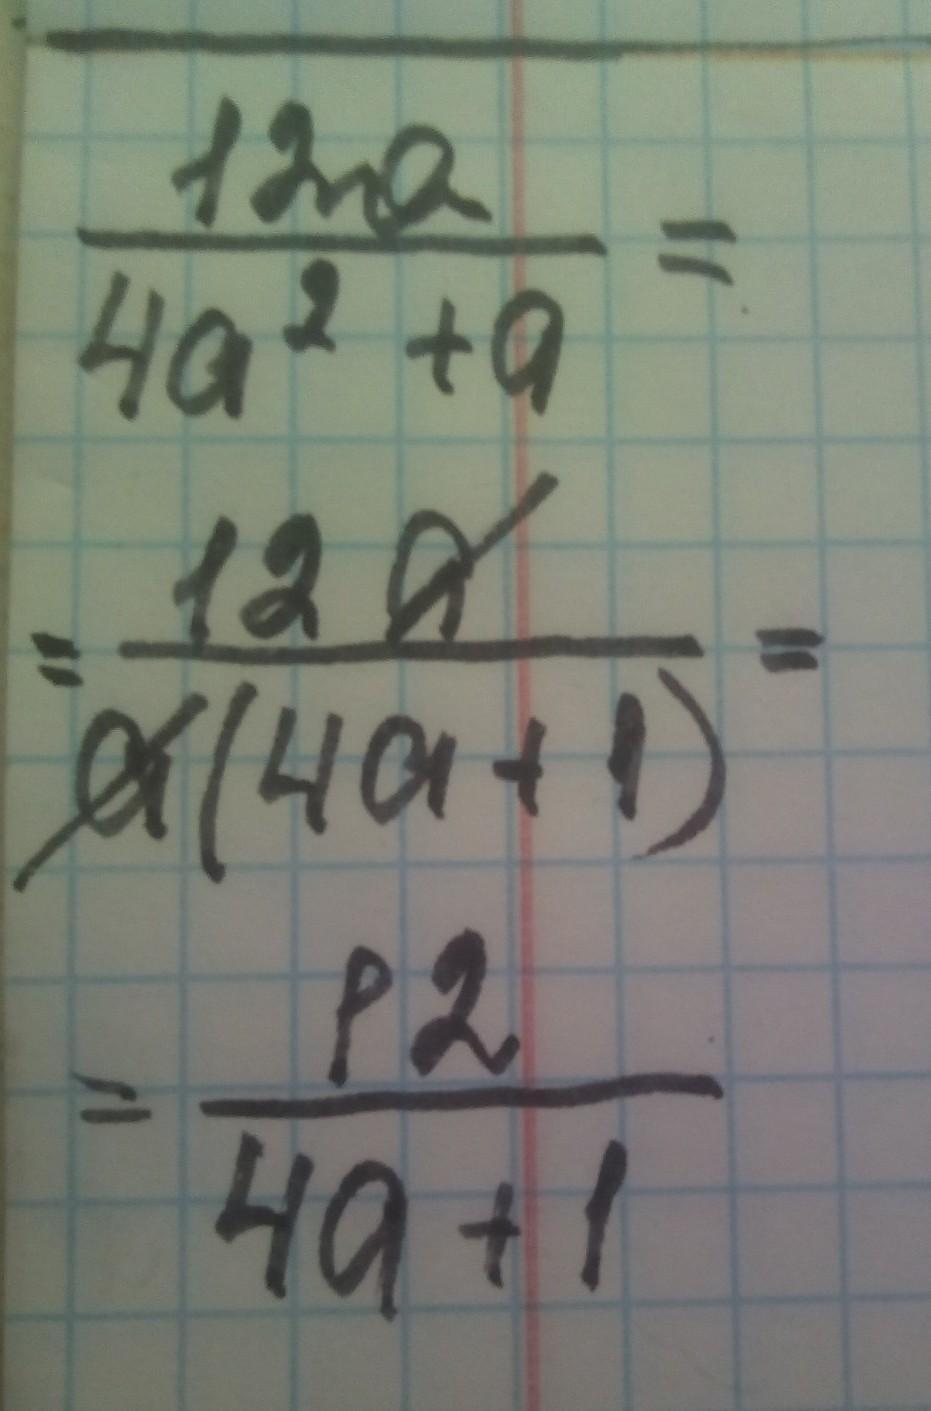 12a
4a² + a =
= 12a
a(4a + 1) =
= 12
4a + 1